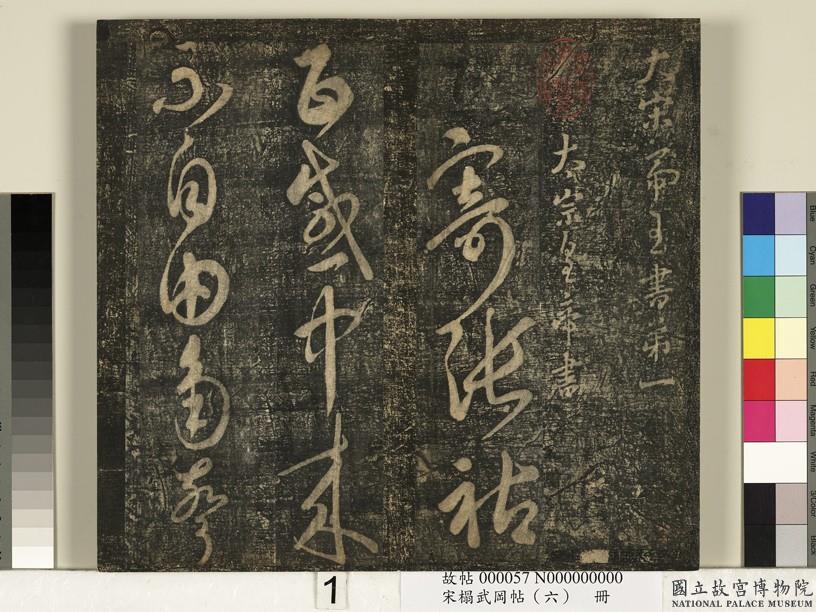 大宋帝王書第一
太宗皇帝書
寄張祜
百感中來
不自由角聲
Blue
Cyan
Green
Yellow
Red
Magenta
White
3/Color
Black
1
故帖 000057 N000000000
宋榻武岡帖（六） 冊
國立故宮博物院
NATIONAL PALACE MUSEUM